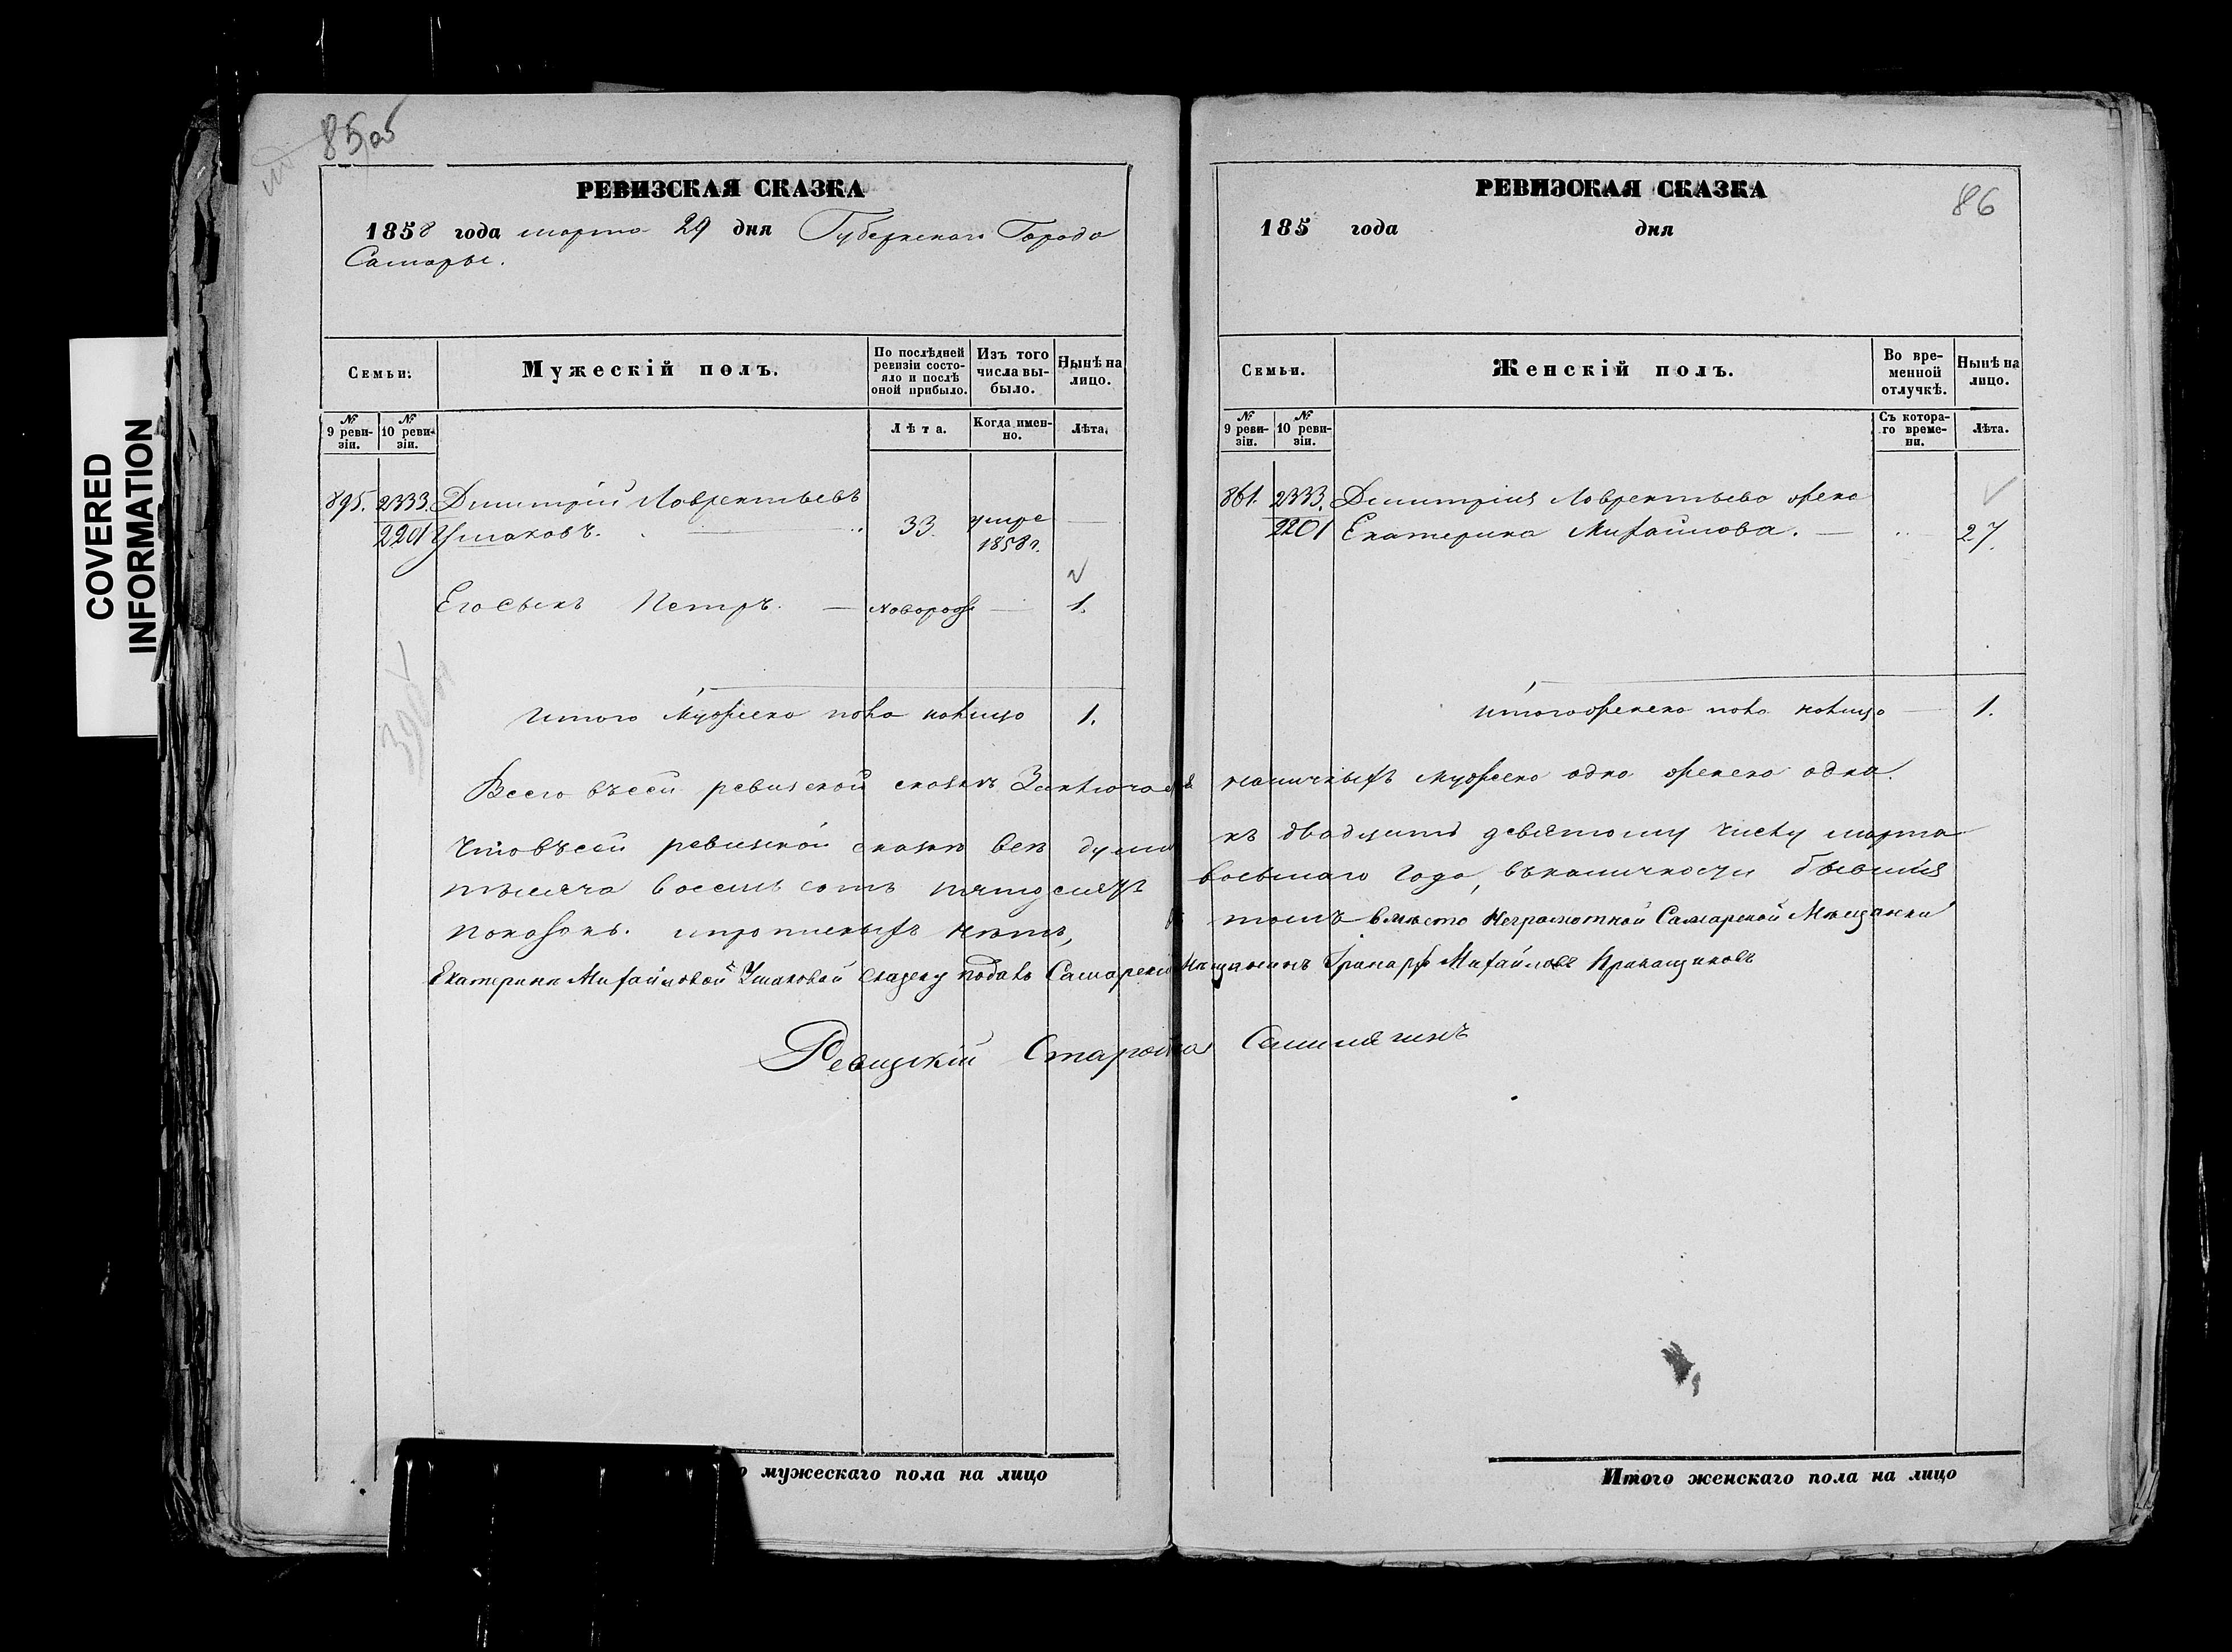 COVERED
INFORMATION
85 об
РЕВИЗСКАЯ СКАЗКА
1858 года марта 29 дня Губернскаго Города
Самары.
Семьи.
Мужескій полъ.
По послѣдней ревизіи состояло и послѣ оной прибыло.
Изъ того числа выбыло.
Нынѣ на лицо.
№ 9 ревизіи.
№ 10 ревизіи.
Лѣта.
Когда именно.
Лѣта.
895. 2333. Димитрій Лаврентьевъ
2201 Ушаковъ. 33. умре 1858 г.
Его сынъ Петръ. — новорож — 1.
Итого мужеска пола налицо 1.
РЕВИЗСКАЯ СКАЗКА
86
185 года дня
Семьи.
Женскій полъ.
Во временной отлучкѣ.
Нынѣ на лицо.
№ 9 ревизіи.
№ 10 ревизіи.
Съ котораго времени.
Лѣта.
861. 2333. Димитрія Лаврентьева жена
2201 Екатерина Михайлова. — 27.
Итого женска пола налицо 1.
Всего въсей ревизской сказкѣ Заключается наличныхъ мужеска одна женска одна.
Чтовъсей ревизской сказкѣ всѣ души къ двадцать девятому числу марта
тысяча восемь сотъ пятдесятъ восьмаго года, въналичности бывшія
показаны. ипрописныхъ нѣтъ, в томъ вмѣсто Неграмотной Самарской Мѣщанки
Екатерины Михайловой Ушаковой сказку подалъ Самарской Мѣщанинъ Михайловъ Приказщиковъ
Ревизскій Староста
о мужескаго пола на лицо
Итого женскаго пола на лицо